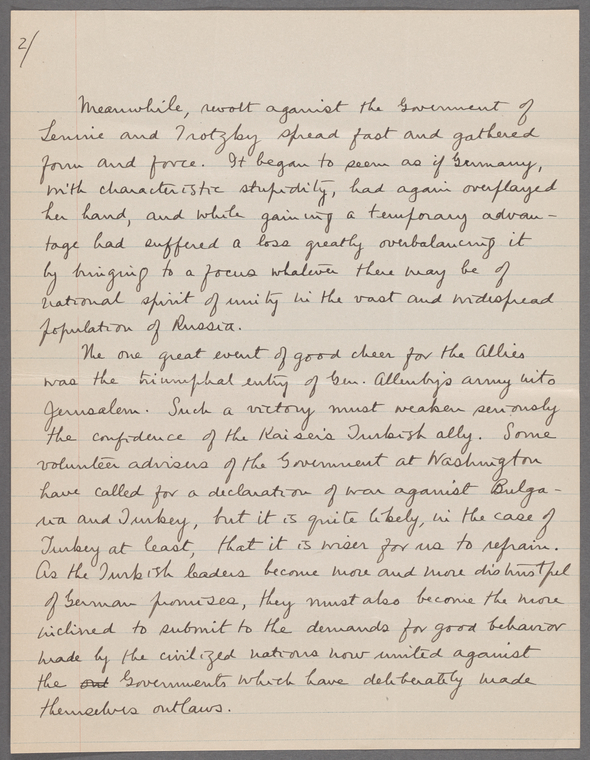 2/
Meanwhile, revolt against the Government of
Lenine and Trotzky spread fast and gathered
form and force. It began to seem as if Germany,
with characteristic stupidity, had again overplayed
her hand, and while gaining a temporary advan-
tage had suffered a loss greatly overbalancing it
by bringing to a focus whatever there may be of
national spirit of unity in the vast and widespread
population of Russia.
The one great event of good cheer for the Allies
was the triumphal entry of Gen. Allenby's army into
Jerusalem. Such a victory must weaken seriously
the confidence of the Kaiser's Turkish ally. Some
volunteer advisers of the Government at Washington
have called for a declaration of war against Bulga-
ria and Turkey, but it is quite likely, in the case of
Turkey at least, that it is wiser for us to refrain.
As the Turkish leaders become more and more distrustful
of German promises, they must also become the more
inclined to submit to the demands for good behavior
made by the civilized nations now united against
the out Governments which have deliberately made
themselves outlaws.